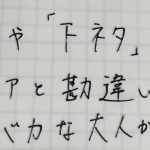 や「下ネタ」
アと勘違い
バカな大人が